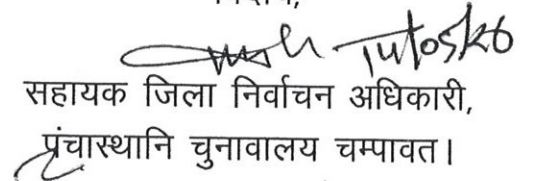 सहायक जिला निर्वाचन अधिकारी,
पंचास्थानि चुनावालय चम्पावत।